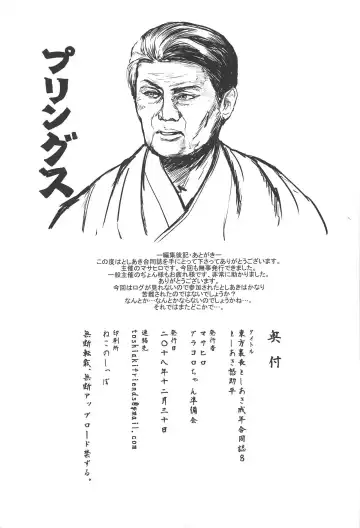 プリングス
―編集後記・あとがき―
この度はとしあき合同誌を手にとって下さってありがとうございます。
主催のマサヒロです。今回も無事発行できました。
一般主催のぢょん様もお疲れ様です、非常に助かりました。
ありがとうございます。
今回はログが見れないので参加されたとしあきはかなり
苦戦されたのではないでしょうか？
なんとか…なんとかならないのでしょうかね…。
それではまたどこかで…。
奥付
タイトル
東方裏長とーあき成年合同誌８
とーあき話助平
発行者
マサヒロ
アラコロちゃん準備会
発行日
二〇十八年十二月三十日
連絡先
toshiakifriends@gmail.com
印刷所
ねこのしっぽ
無断転載、無断アップロード禁ずる。